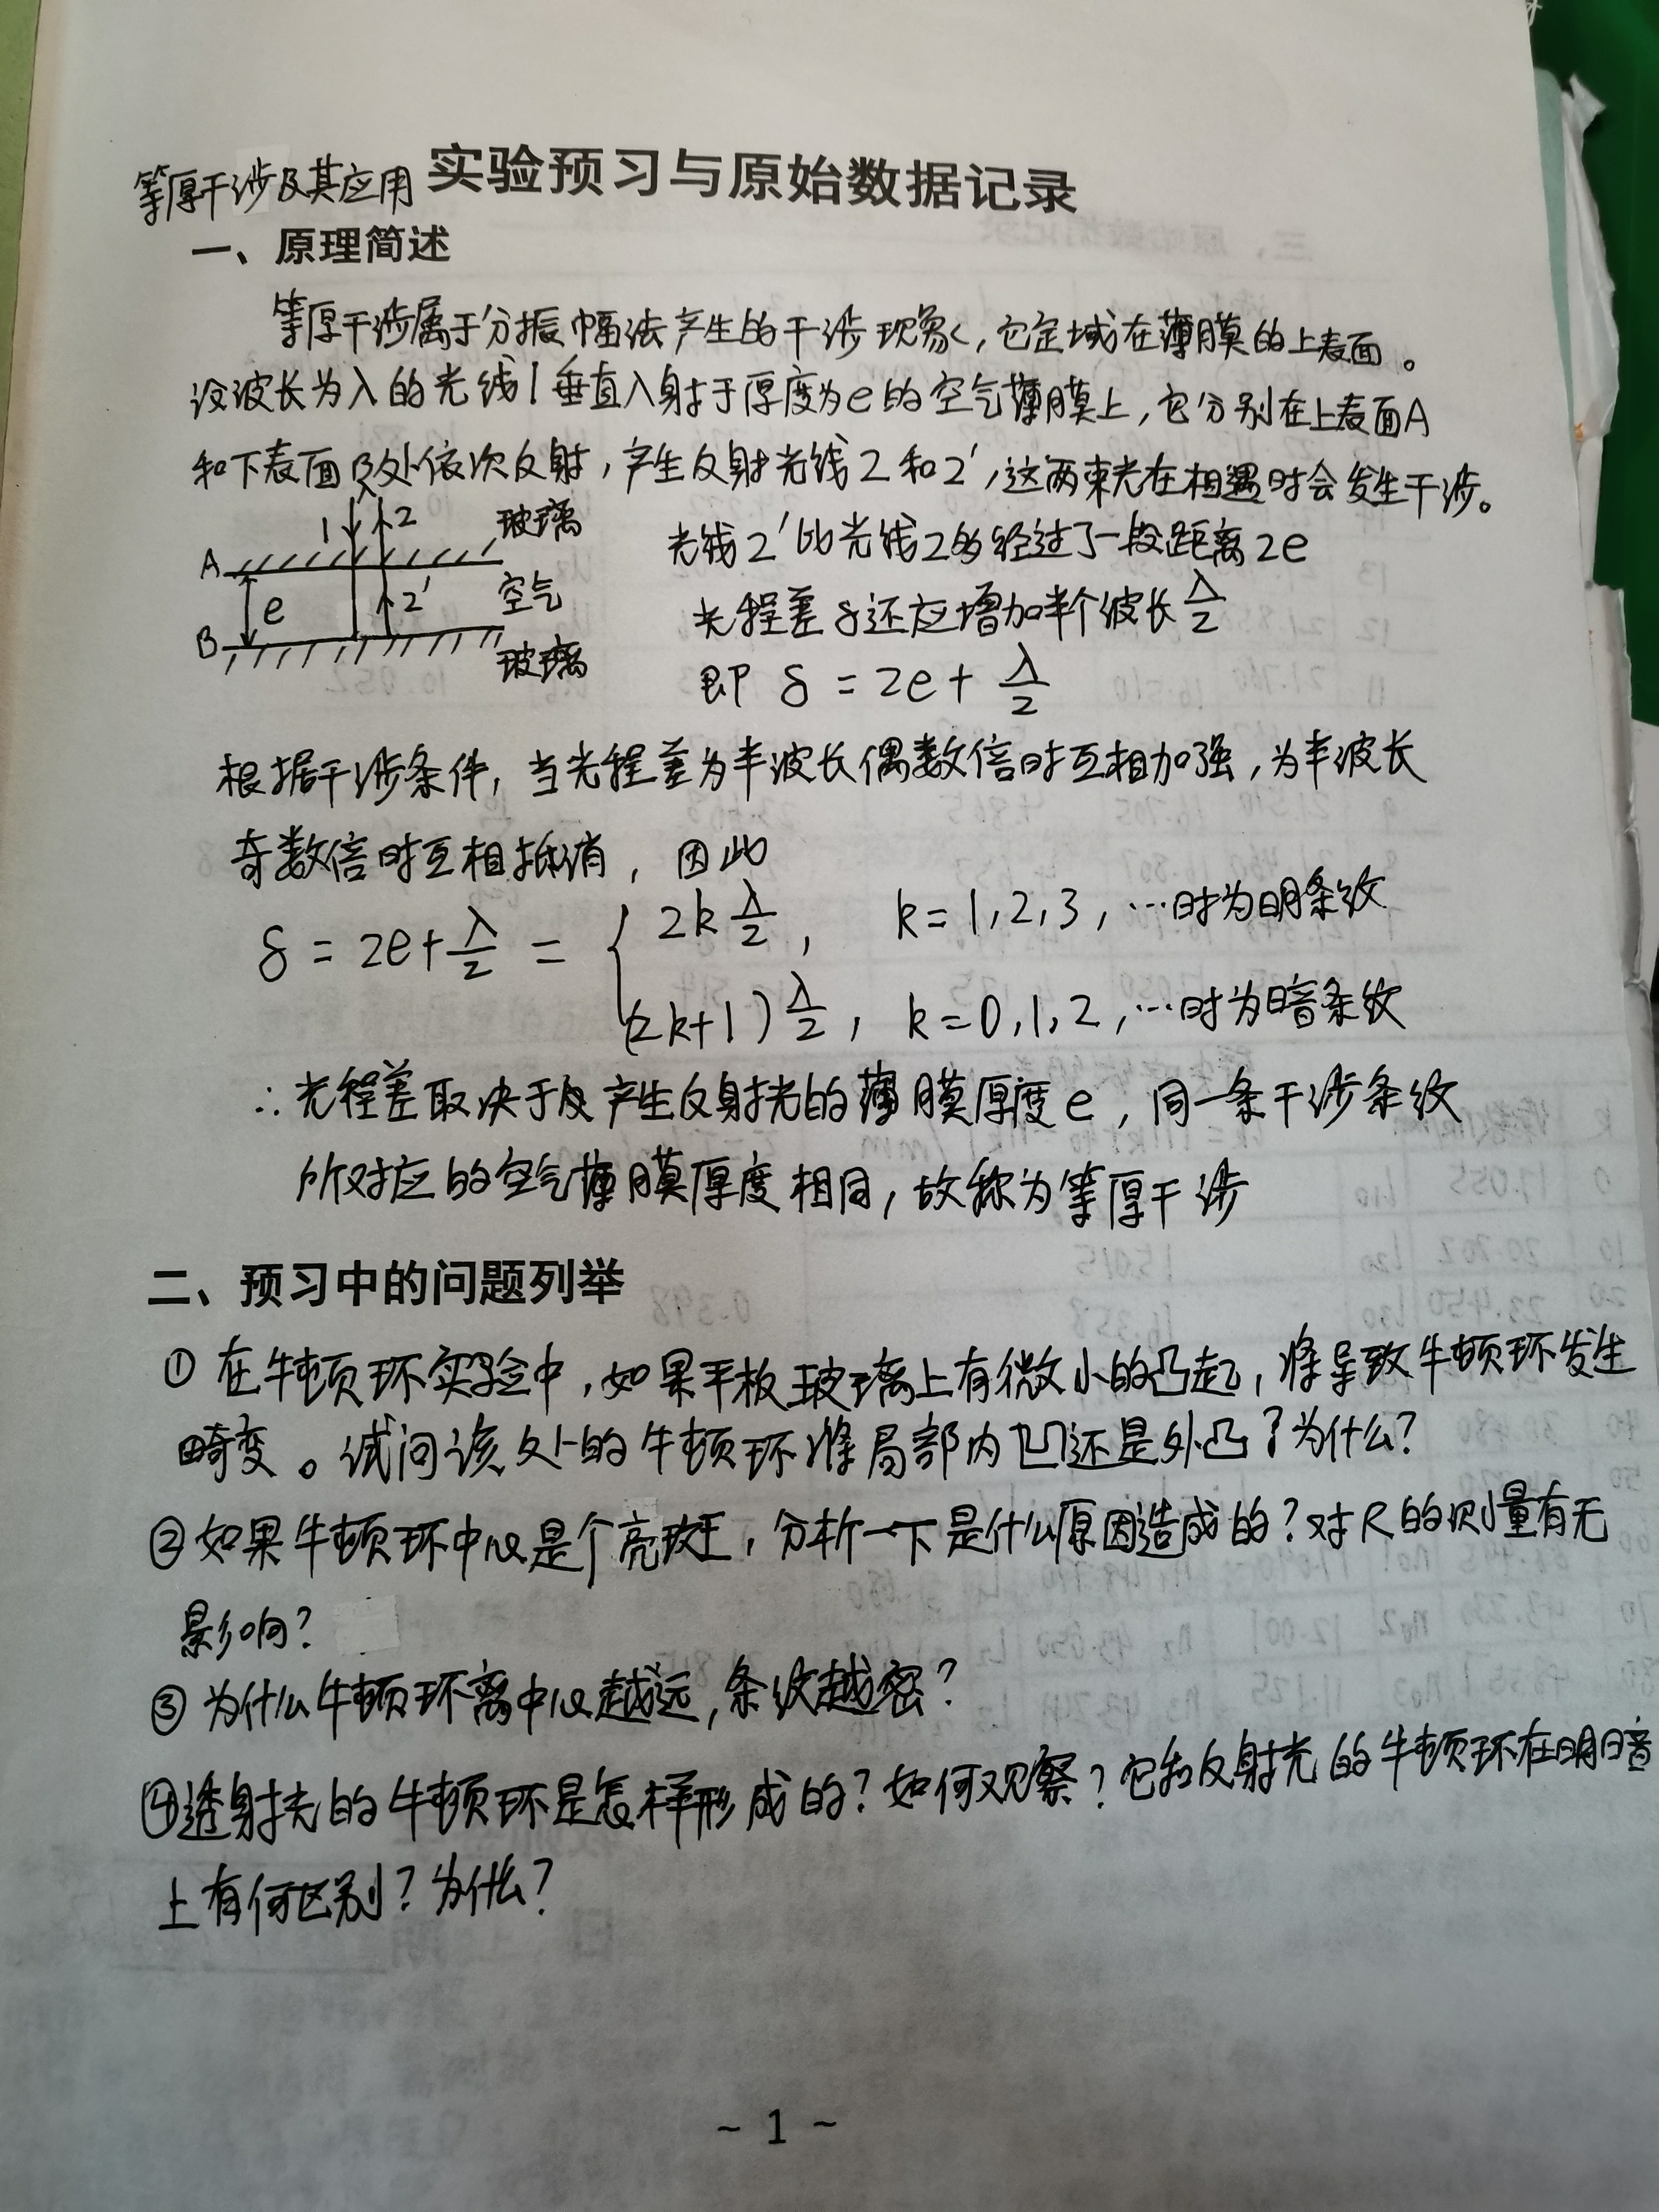 等厚干涉及其应用 实验预习与原始数据记录
一、原理简述
等厚干涉属于分振幅法产生的干涉现象,它定域在薄膜的上表面。
设波长为λ的光线1垂直入射于厚度为e的空气薄膜上,它分别在上表面A
和下表面B处依次反射,产生反射光线2和2′,这两束光在相遇时会发生干涉。
1 2 玻璃
A e 2′ 空气
B 玻璃
光线2′比光线2多经过了一段距离2e
光程差δ还应增加半个波长λ/2
即 δ = 2e + λ/2
根据干涉条件,当光程差为半波长偶数倍时互相加强,为半波长
奇数倍时互相抵消,因此
δ = 2e + λ/2 = { 2k λ/2, k=1,2,3,…时为明条纹
(2k+1) λ/2, k=0,1,2,…时为暗条纹
∴光程差取决于产生反射光的薄膜厚度e,同一条干涉条纹
所对应的空气薄膜厚度相同,故称为等厚干涉
二、预习中的问题列举
① 在牛顿环实验中,如果平板玻璃上有微小的凸起,将导致牛顿环发生
畸变。试问该处的牛顿环将局部内凹还是外凸?为什么?
② 如果牛顿环中心是个亮斑,分析一下是什么原因造成的?对R的测量有无
影响?
③ 为什么牛顿环离中心越远,条纹越密?
④ 透射光的牛顿环是怎样形成的?如何观察?它和反射光的牛顿环在明暗
上有何区别?为什么?
~ 1 ~